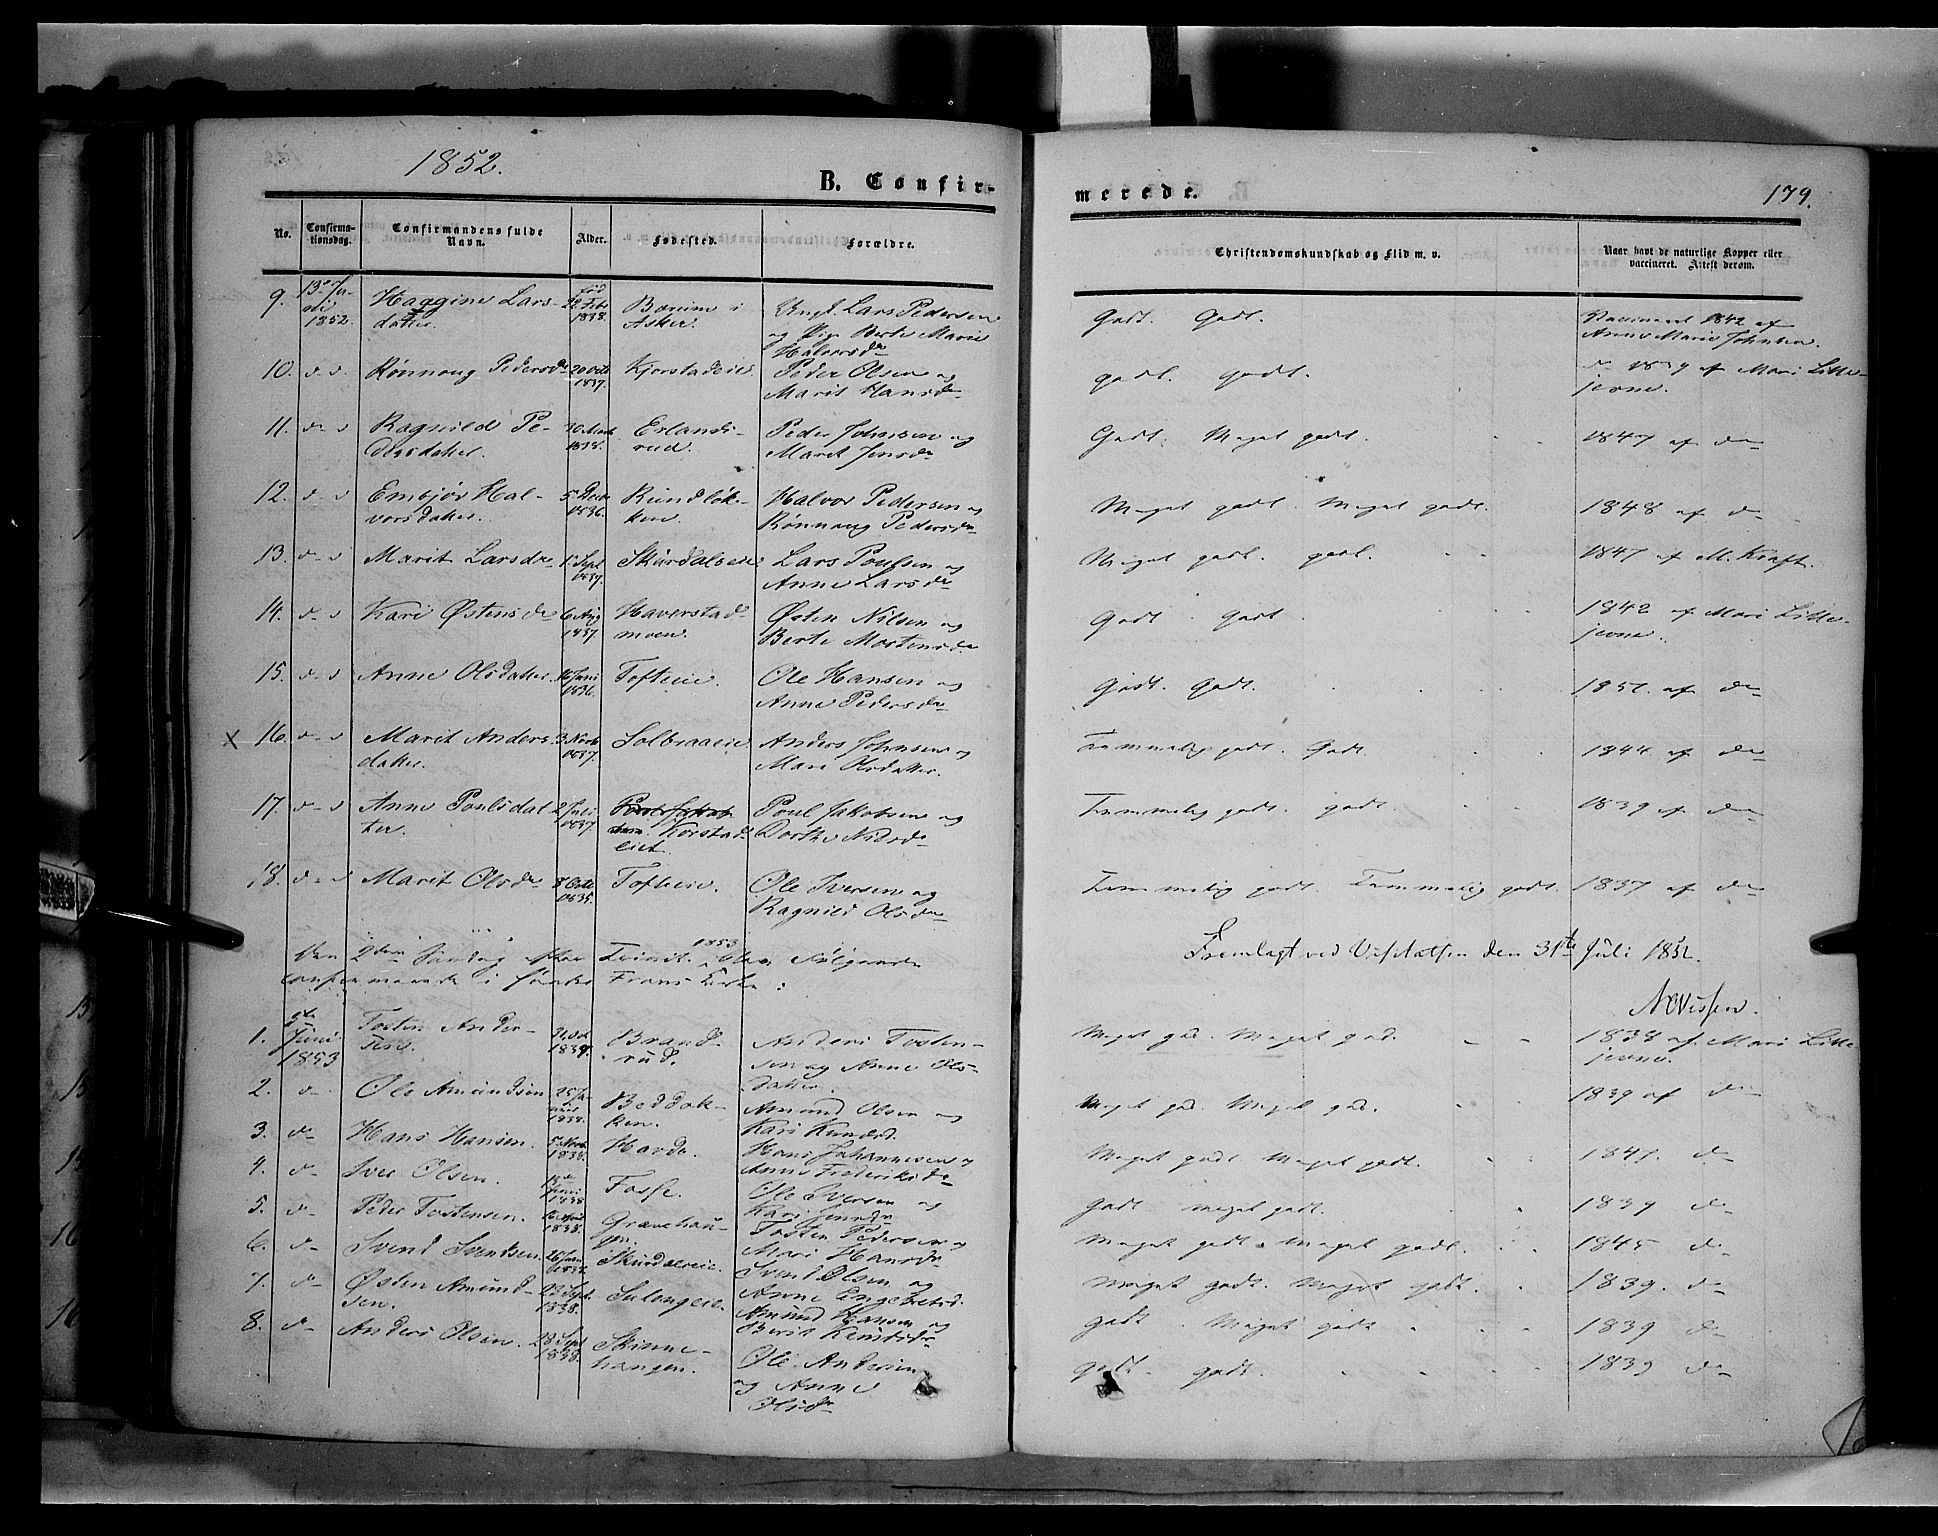 1852.
B. Confir-
merede.
179.
No.
Confirma-
tionsdag.
Confirmandens fulde
Navn.
Alder.
Fødested.
Forældre.
Christendomskundskab og Flid m. v.
Naar havt de naturlige Kopper eller
vaccineret. Attest derom.
9. 1852. Lars- datter. født 1838. i Asker. Ungk. Lars Pedersen og Pige Berte Marie Halvorsdr Godt. Godt. Vaccineret 1842 af Anne Marie Johnsen.
10. d- d. Rønnoug Pedersdr 20 Octb 1837. Kjorstadeie. Peder Olsen og Marit Hansdr godt. godt. dr 1839 af Mari Lille- jevne.
11. d- d Ragnild Pe- dersdatter. 1838. Erlands- rud. Peder Johnsen og Maret Jensdr Godt. Meget godt. 1847 af dr
12. d- d Embjør Hal- vorsdatter. 5 Decb 1836. Rundløk- ken. Halvor Pedersen og Rønnoug Pedersdr Meget godt. Meget godt. 1848 af dr
13. d- d Marit Larsdr 1 Sept 1837. Skurdalseie Lars Poulsen og Anne Larsdr Meget godt. godt. 1847 af M. Kraft.
14. d- d Kari Østensdr 6 Aug 1837. Haverstad- moen. Østen Nilsen og Berte Mortensdr Godt. Godt. 1842 af Mari Lille- jevne.
15. d- d Anne Olsdatter. Juni 1836. Tofteeie. Ole Hansen og Anne Pedersdr Godt. Godt. 1851. af dr
X 16. d- d Marit Anders- datter. 3 Novb 1837. Solbraaeie Anders Johnsen og Mari Olsdatter. Temmelig godt. Godt. 1844 af dr
17. d- d Anne Poulsdat- ter. 2 Juli 1837. Korstad- eiet. Poul Jakobsen og Dorthe Nilsdr Temmelig godt. godt. 1839 af dr
18. d- d Marit Olsdr 8 Octb 1835. Tofteeie. Ole Iversen og Ragnild Olsdr Temmelig godt. Temmelig godt. 1837 af dr
Den 2den Søndag efter Trinit. 1853 confirmerede i søndre Frons Kirke:
Fremlagt ved Visitatsen den 31te Juli 1852.
1. Juni 1853 Tosten Ander- sen. 1839. Brand- rud. Anders Tosten- sen og Anne Ols- datter. Meget god. Meget god. 1838 af Mari Lille- jevne.
2. d- Ole Amundsen 1838. Beddok- ken. Amund Olsen og Kari Knudsd. Meget god. Meget god. 1839 af dr
3. dr Hans Hansen. 5 Novb 1838. Harde. Hans Johannesen og Anne Frederiksdr Meget godt Meget godt. 1847. dr
4. d- Iver Olsen. 1838 Fosse. Ole Iversen og Kari Jensdr godt meget godt. 1839 dr
5. d- Peder Tostensen. 1838. Gravehau- gen. Tosten Pedersen og Mari Hansdr Meget godt. Meget godt. 1845 dr
6. d- Svend Svendsen. 26 Juni Skurdalseie. Svend Olsen og Anne Engebretsd. Meget godt. Meget godt. 1839. dr
7. d- Østen Amund- sen. 23 Sept. 1838. Sulangeie. Amund Hansen og Berit Knudsdr godt. Meget godt 1839 dr
8. d- Anders Olsen. 28 Sept 1838. Skinne- hangen. Ole Andersen og Anne Olsdr godt. godt. 1839 dr